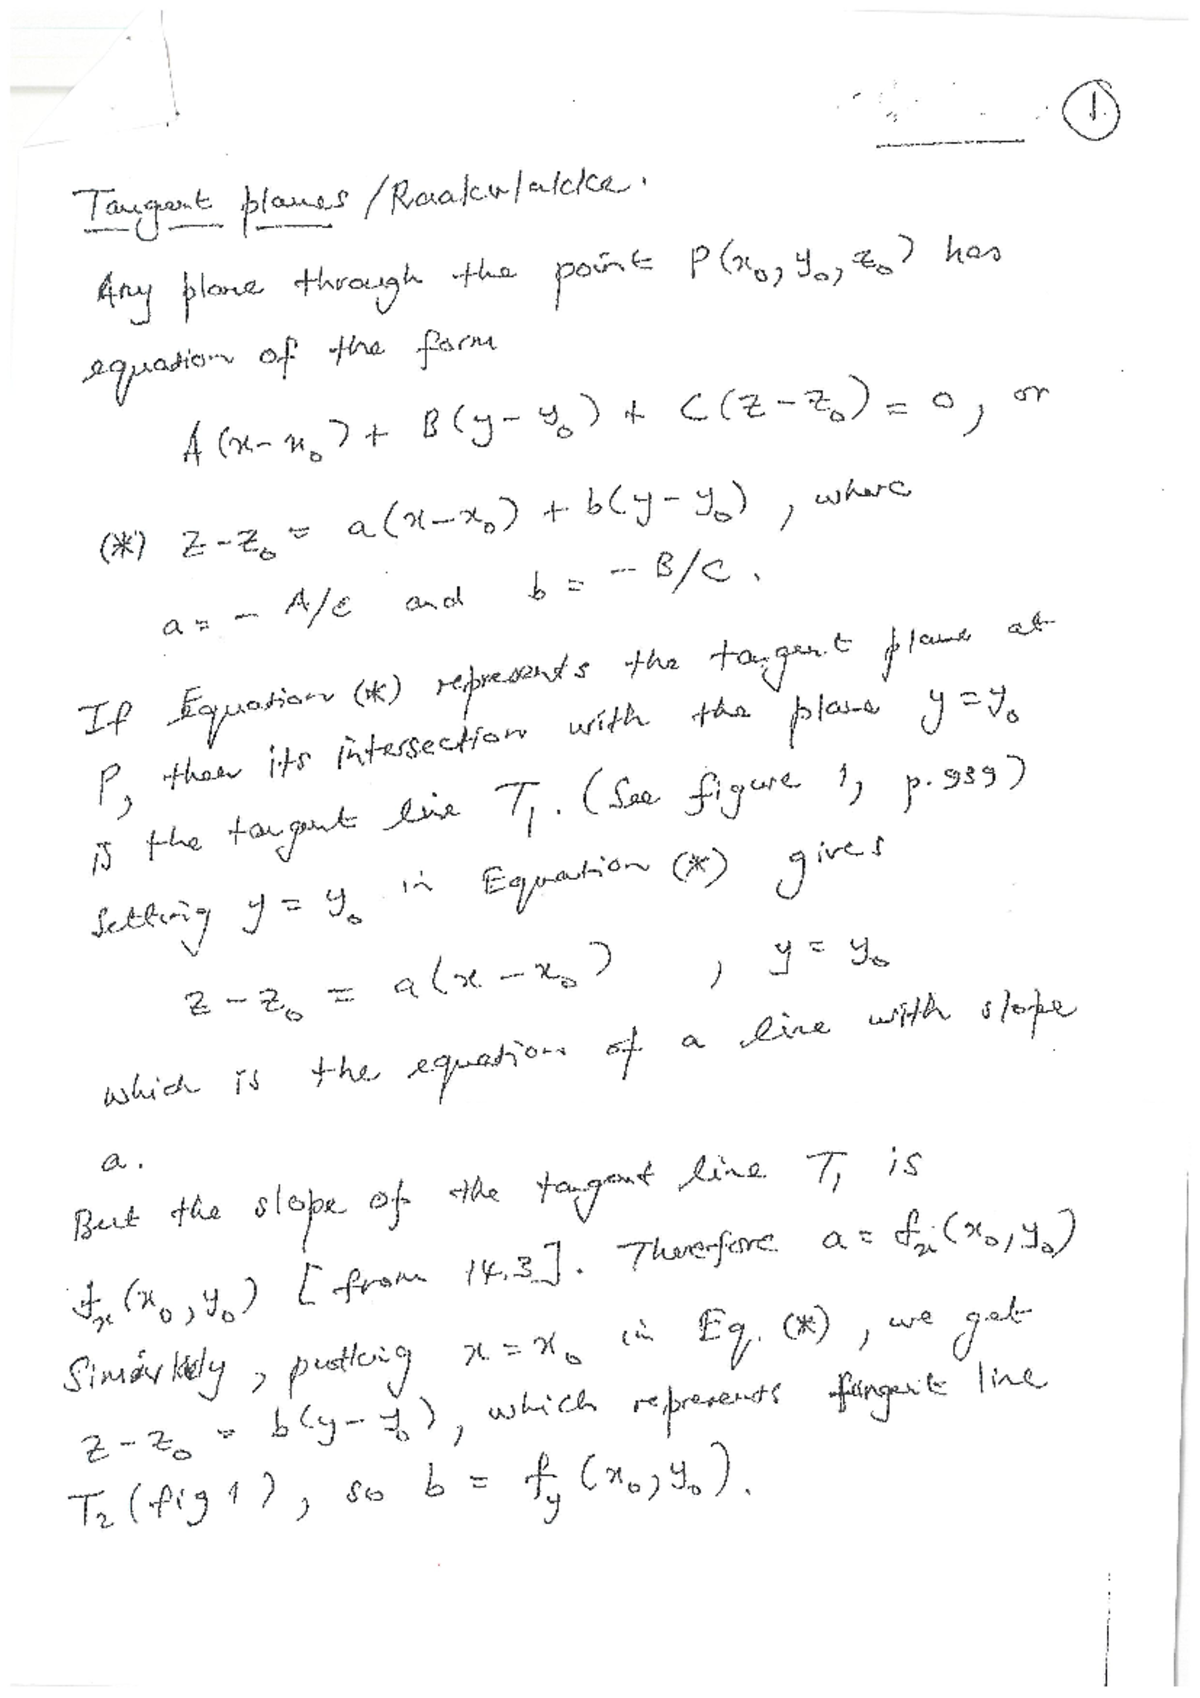 1.
Tangent planes / Raakvlakke.
Any plane through the point P(x₀, y₀, z₀) has
equation of the form
A(x-x₀) + B(y-y₀) + C(z-z₀) = 0, or
(*) z-z₀ = a(x-x₀) + b(y-y₀), where
a = - A/C and b = - B/C.
If Equation (*) represents the tangent plane at
P, then its intersection with the plane y = y₀
is the tangent line T₁. (See figure 1, p. 939)
Setting y = y₀ in Equation (*) gives
z - z₀ = a(x - x₀) , y = y₀
which is the equation of a line with slope
a.
But the slope of the tangent line T₁ is
fₓ(x₀, y₀) [from 14.3]. Therefore a = fₓ(x₀, y₀)
Similarly, putting x = x₀ in Eq. (*), we get
z - z₀ = b(y - y₀), which represents tangent line
T₂ (fig 1), so b = f_y (x₀, y₀).